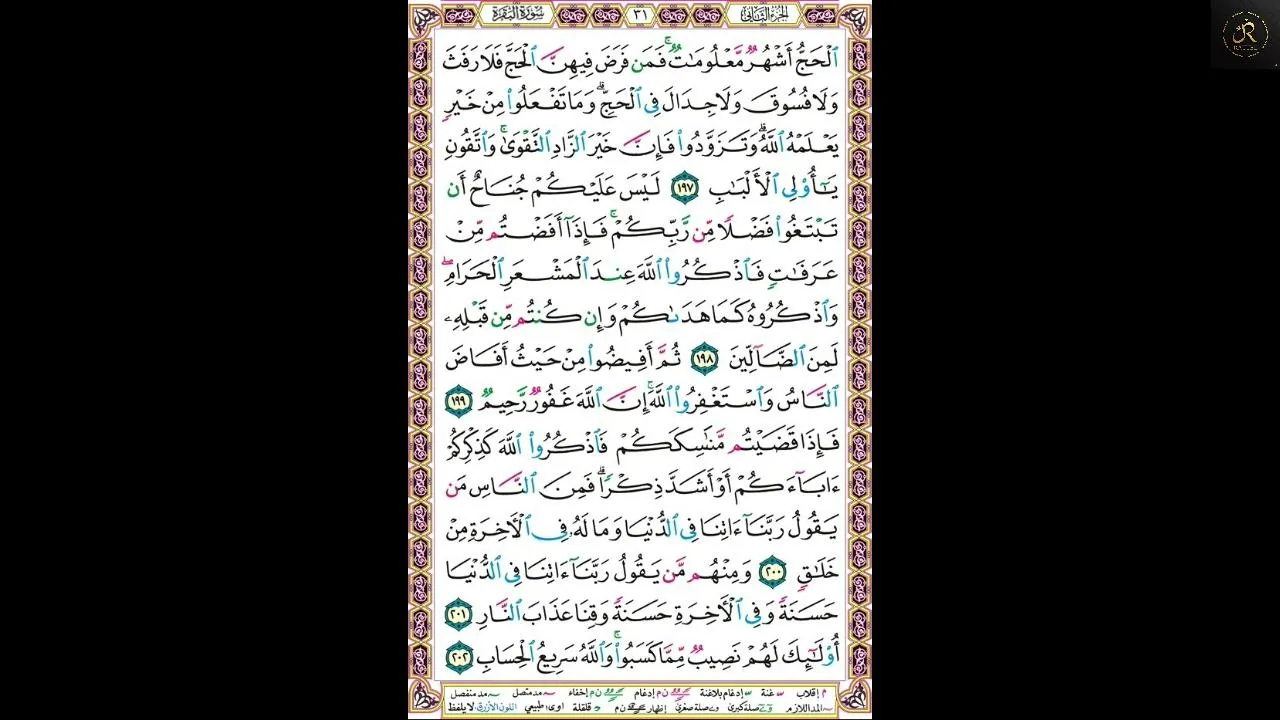 الجزء الثاني ٣١ سورة البقرة
ٱلْحَجُّ أَشْهُرٌ مَّعْلُومَٰتٌ ۚ فَمَن فَرَضَ فِيهِنَّ ٱلْحَجَّ فَلَا رَفَثَ
وَلَا فُسُوقَ وَلَا جِدَالَ فِى ٱلْحَجِّ ۗ وَمَا تَفْعَلُوا۟ مِنْ خَيْرٍ
يَعْلَمْهُ ٱللَّهُ ۗ وَتَزَوَّدُوا۟ فَإِنَّ خَيْرَ ٱلزَّادِ ٱلتَّقْوَىٰ ۚ وَٱتَّقُونِ
يَٰٓأُو۟لِى ٱلْأَلْبَٰبِ ١٩٧ لَيْسَ عَلَيْكُمْ جُنَاحٌ أَن
تَبْتَغُوا۟ فَضْلًا مِّن رَّبِّكُمْ ۚ فَإِذَآ أَفَضْتُم مِّنْ
عَرَفَٰتٍ فَٱذْكُرُوا۟ ٱللَّهَ عِندَ ٱلْمَشْعَرِ ٱلْحَرَامِ ۖ
وَٱذْكُرُوهُ كَمَا هَدَىٰكُمْ وَإِن كُنتُم مِّن قَبْلِهِۦ
لَمِنَ ٱلضَّآلِّينَ ١٩٨ ثُمَّ أَفِيضُوا۟ مِنْ حَيْثُ أَفَاضَ
ٱلنَّاسُ وَٱسْتَغْفِرُوا۟ ٱللَّهَ ۚ إِنَّ ٱللَّهَ غَفُورٌ رَّحِيمٌ ١٩٩
فَإِذَا قَضَيْتُم مَّنَٰسِكَكُمْ فَٱذْكُرُوا۟ ٱللَّهَ كَذِكْرِكُمْ
ءَابَآءَكُمْ أَوْ أَشَدَّ ذِكْرًا ۗ فَمِنَ ٱلنَّاسِ مَن
يَقُولُ رَبَّنَآ ءَاتِنَا فِى ٱلدُّنْيَا وَمَا لَهُۥ فِى ٱلْأَخِرَةِ مِنْ
خَلَٰقٍ ٢٠٠ وَمِنْهُم مَّن يَقُولُ رَبَّنَآ ءَاتِنَا فِى ٱلدُّنْيَا
حَسَنَةً وَفِى ٱلْأَخِرَةِ حَسَنَةً وَقِنَا عَذَابَ ٱلنَّارِ ٢٠١
أُو۟لَٰٓئِكَ لَهُمْ نَصِيبٌ مِّمَّا كَسَبُوا۟ ۚ وَٱللَّهُ سَرِيعُ ٱلْحِسَابِ ٢٠٢
م إقلاب غنة إدغام بلاغنة ن م إدغام ن م إخفاء مد متصل مد منفصل
المد اللازم صلة كبرى صلة صغرى إظهار ن م قلقلة اوى: طبيعي اللون الأزرق: لا يلفظ